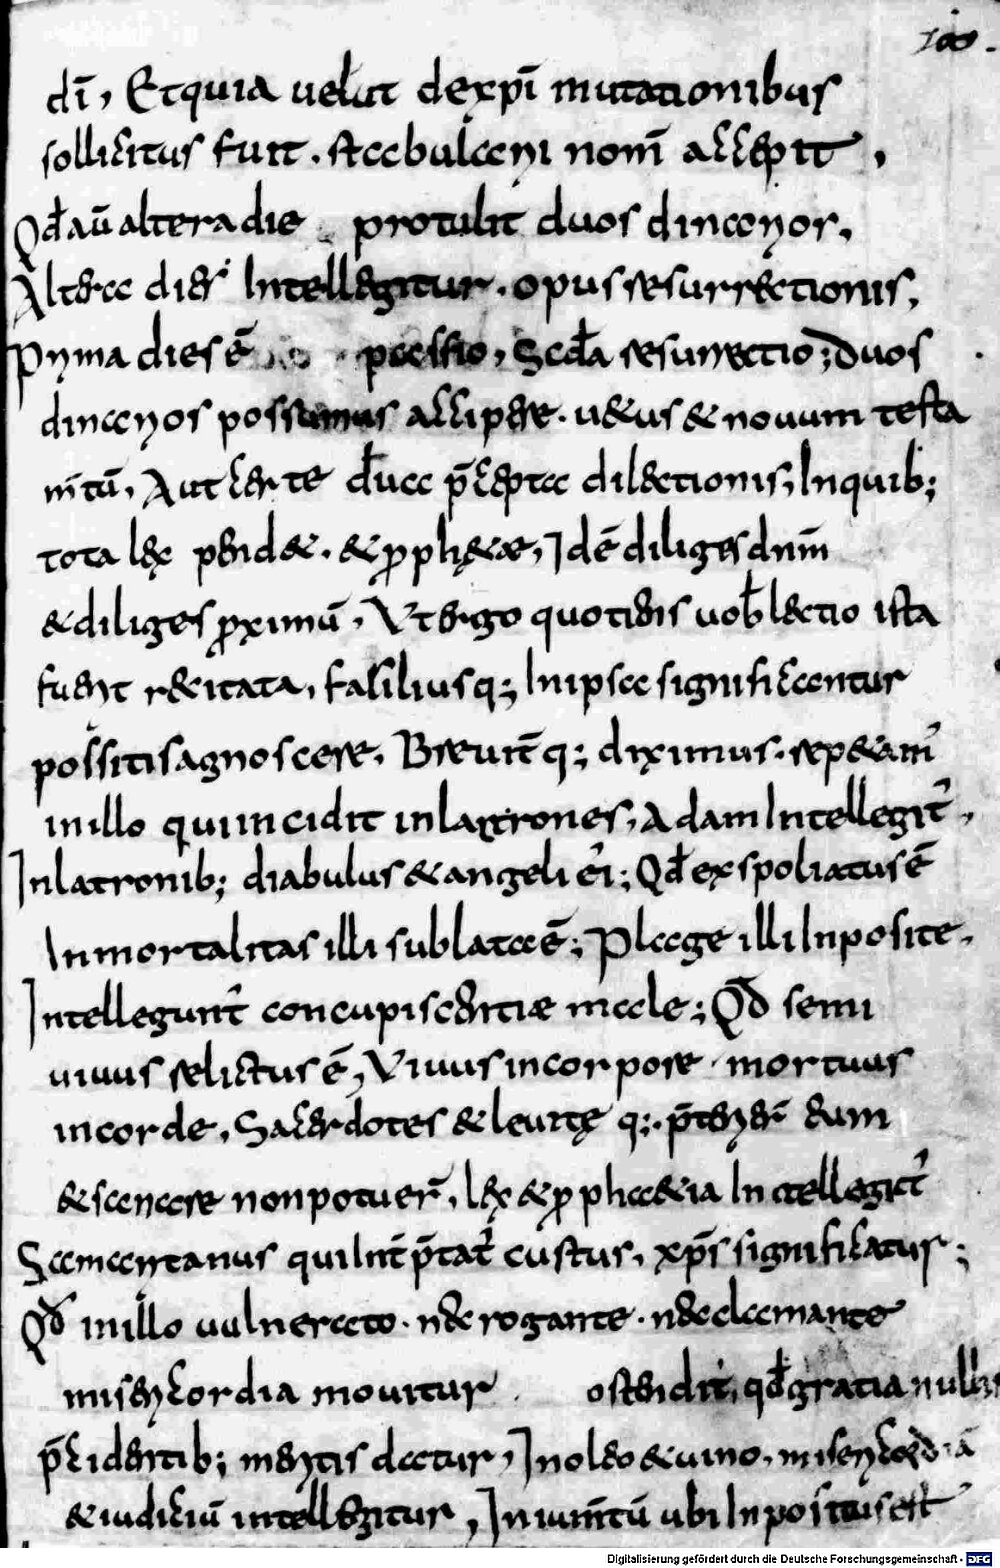 100.
dī, Et quia uelut de xp̄i mutationibus
sollicitus fuit. stabularii nom̄ accepit,
Qd̄ aū altera die protulit duos dinarios,
Altera dies intellegitur. opus resurrectionis,
Prima dies ē passio, Scd̄a resurrectio; duos
dinarios possumus accipere. uetus & nouum testa
m̄tū, Aut certe dūa p̄cepta dilectionis, Inquib;
tota lex pendet. & prophetae, Idē diliges dn̄m
& diliges proximū, Ut ergo quotiens uob̄ lectio ista
fuerit recitata, faciliusq; in ipsa significantur
possitis agnoscere, Breuit̄q; diximus. repetam̄
in illo qui incidit in latrones, Adam intellegit̄,
In latronib; diabulus & angeli ei; Qd̄ exspoliatus ē
Inmortalitas illi sublata ē; Plage illi inposite,
Intellegunt̄ concupiscentiae male; Qd̄ semi
uiuus relictus ē, Uiuus in corpore mortuus
in corde, Sacerdotes & leuitę q;. p̄terier̄ eum
& sanare non potuer̄, lex & prophaetia intellegit̄
Samaritanus qui int̄p̄tat̄ custus, xp̄s significatur;
Qd̄ in illo uulnerato. n̄ de rogante. n̄ de clamante
misericordia mouitur ostendit, qd̄ gratia nullis
p̄cidentib; meritis datur, In oleo & uino, misericordia
& iudiciū intellegitur, In ium̄tū ubi inpositus est
Digitalisierung gefördert durch die Deutsche Forschungsgemeinschaft - DFG